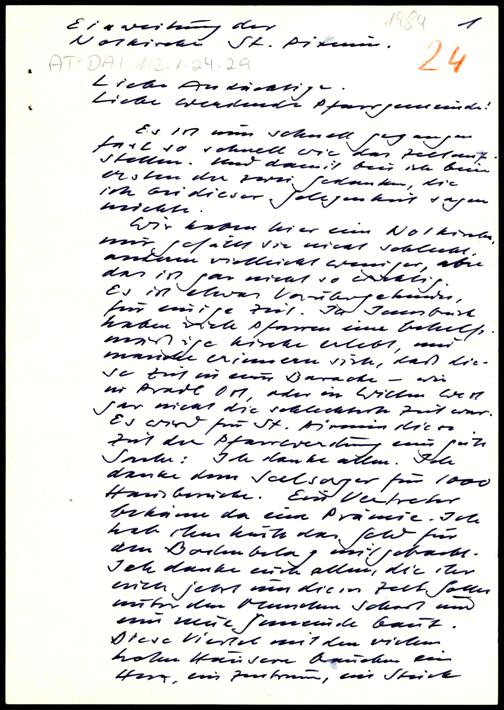 Einweihung der 1984 1
Notkirche St. Pirmin. 24
AT-DAI 1.3.1.24.29
Liebe Andächtige.
Liebe werdende Pfarrgemeinde!
Es ist nun schnell gegangen
fast so schnell wie das Zeltauf-
stellen. Und damit bin ich beim
ersten der zwei Gedanken, die
ich bei dieser Gelegenheit sagen
möchte.
Wir haben hier eine Notkirche,
mir gefällt sie nicht schlecht,
andern vielleicht weniger, aber
das ist gar nicht so wichtig.
Es ist etwas Vorübergehendes,
für einige Zeit. In Innsbruck
haben viele Pfarren eine behelfs-
mäßige Kirche erlebt, und
manche erinnern sich, daß die-
se Zeit in einer Baracke – wie
in Pradl Ost, oder in Wilten West
gar nicht die schlechteste Zeit war.
Es wird für St. Pirmin diese
Zeit der Pfarrwerdung eine gute
Sache: Ich danke allen. Ich
danke dem Seelsorger für 1000
Hausbesuche. Ein Vertreter
bekäme da eine Prämie. Ich
hab ihm heute das Geld für
den Bodenbelag mitgebracht.
Ich danke euch allen, die ihr
euch jetzt um dieses Zelt Gottes
unter den Menschen schart und
eine neue Gemeinde baut.
Diese Viertel mit den vielen
hohen Häusern brauchen ein
Herz, ein Zentrum, ein Stück